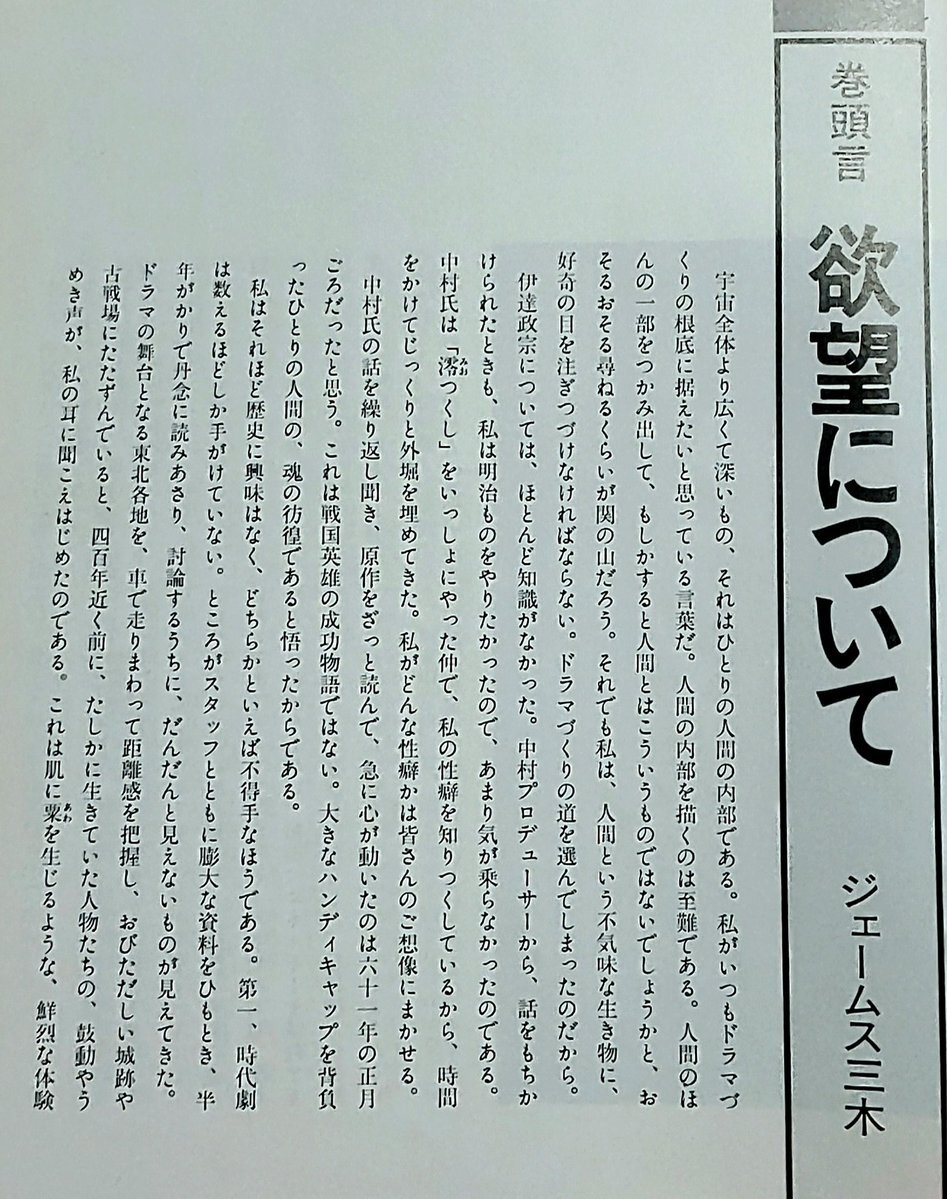 巻頭言
欲望について
ジェームス三木
宇宙全体より広くて深いもの、それはひとりの人間の内部である。私がいつもドラマづ
くりの根底に据えたいと思っている言葉だ。人間の内部を描くのは至難である。人間のほ
んの一部をつかみ出して、もしかすると人間とはこういうものではないでしょうかと、お
そるおそる尋ねるくらいが関の山だろう。それでも私は、人間という不気味な生き物に、
好奇の目を注ぎつづけなければならない。ドラマづくりの道を選んでしまったのだから。
伊達政宗については、ほとんど知識がなかった。中村プロデューサーから、話をもちか
けられたときも、私は明治ものをやりたかったので、あまり気が乗らなかったのである。
中村氏は「澪つくし」をいっしょにやった仲で、私の性癖を知りつくしているから、時間
をかけてじっくりと外堀を埋めてきた。私がどんな性癖かは皆さんのご想像にまかせる。
中村氏の話を繰り返し聞き、原作をざっと読んで、急に心が動いたのは六十一年の正月
ごろだったと思う。これは戦国英雄の成功物語ではない。大きなハンディキャップを背負
ったひとりの人間の、魂の彷徨であると悟ったからである。
私はそれほど歴史に興味はなく、どちらかといえば不得手なほうである。第一、時代劇
は数えるほどしか手がけていない。ところがスタッフとともに膨大な資料をひもとき、半
年がかりで丹念に読みあさり、討論するうちに、だんだんと見えないものが見えてきた。
ドラマの舞台となる東北各地を、車で走りまわって距離感を把握し、おびただしい城跡や
古戦場にたたずんでいると、四百年近く前に、たしかに生きていた人物たちの、鼓動やう
めき声が、私の耳に聞こえはじめたのである。これは肌に粟を生じるような、鮮烈な体験